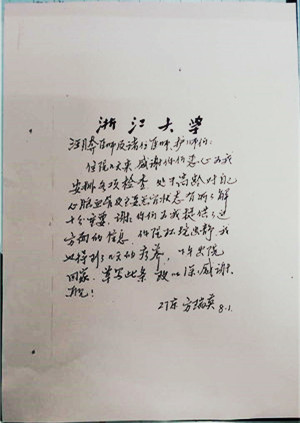 浙江大学
汪 医师及诸位医师、护师们:
住院 天来,感谢你们悉心为我
安排各项检查,处于高龄对自己
心脑血管及 状态有所了解
十分重要,谢谢你们为我提供了这
方面的信息。住院环境安静,我
也得到 天的疗养,今年出院
回家,草写此条,致以深深感谢。
祝!
27床 方 英 8.1.